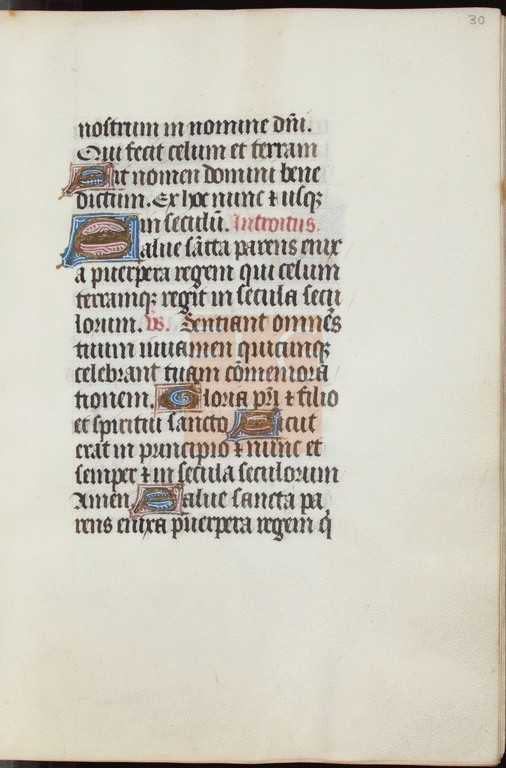 30
nostrum in nomine dñi.
Qui fecit celum et terram
Sit nomen domini bene
dictum. Ex hoc nunc ⁊ usqꝫ
in seculũ. Introitus.
Salue sãcta parens enix
a puerpera regem qui celum
terramqꝫ regit in secula secu
lorum. Vs. Sentiant omnes
tuum iuuamen quicunqꝫ
celebrant tuam cõmemora
tionem. Gloria pr̃i ⁊ filio
et spiritui sancto Sicut
erat in principio ⁊ nunc et
semper ⁊ in secula seculorum
Amen Salue sancta pa
rens enixa puerpera regem q̃